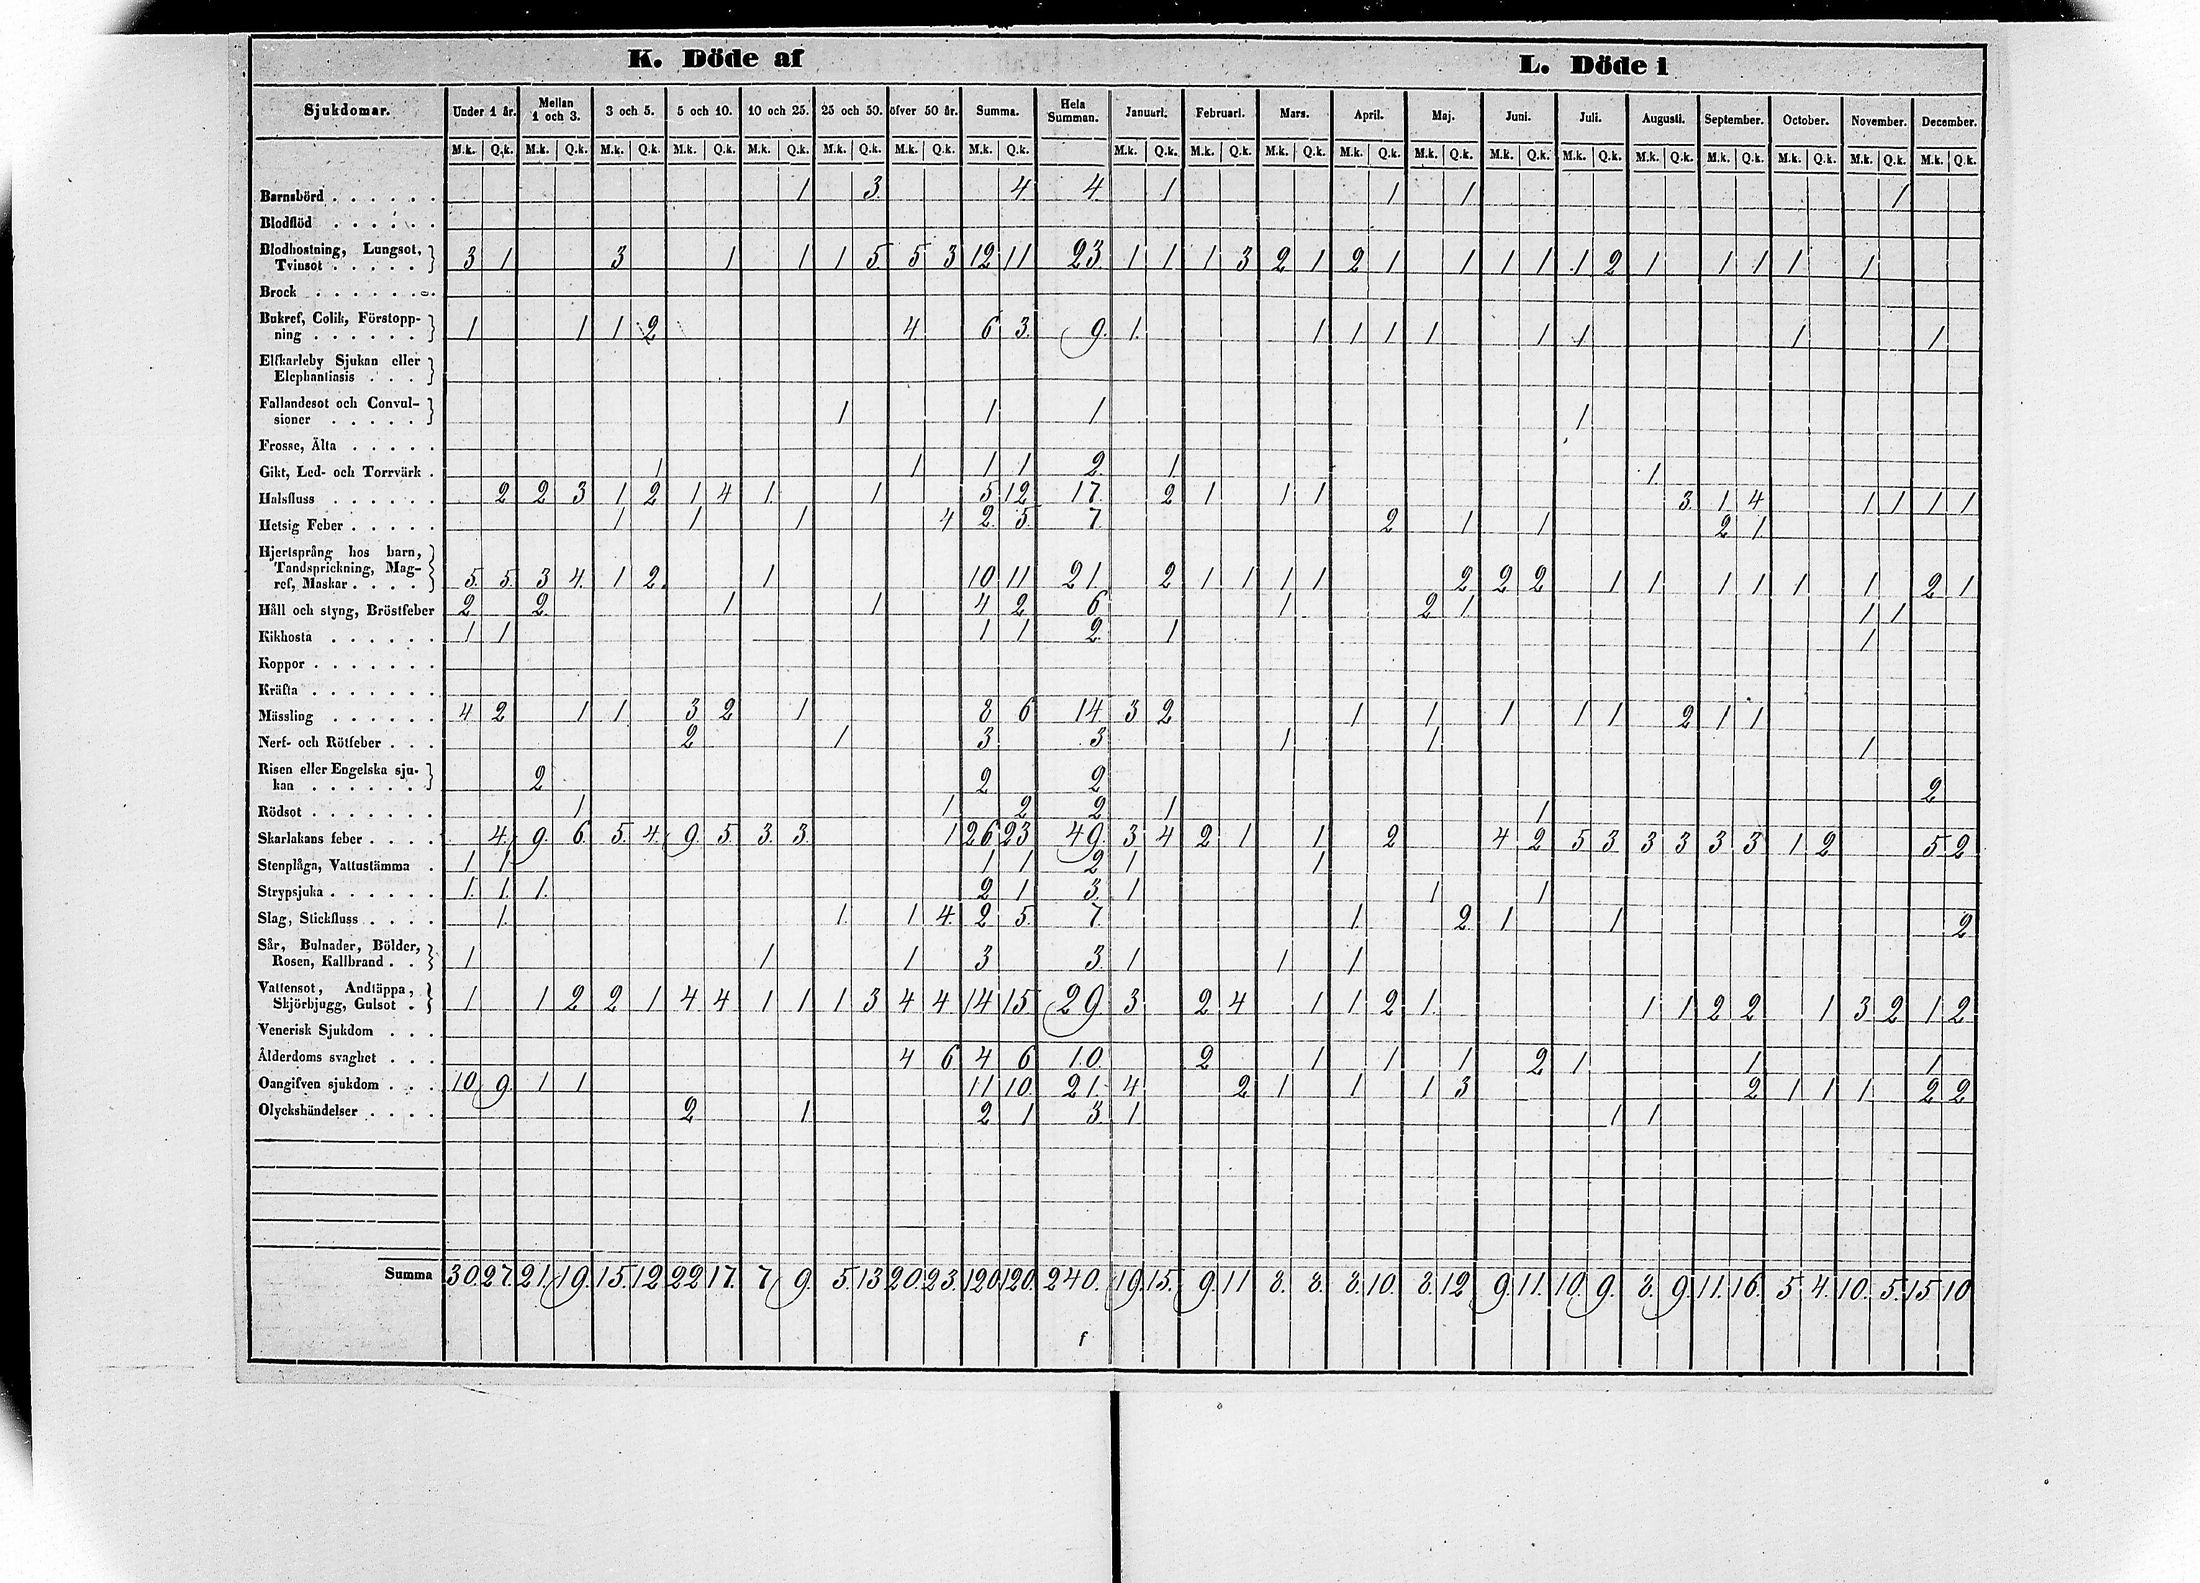 K. Döde af L. Döde i
Sjukdomar. Under 1 år. Mellan 1 och 3. 3 och 5. 5 och 10. 10 och 25. 25 och 50. öfver 50 år. Summa. Hela Summan. Januari. Februari. Mars. April. Maj. Juni. Juli. Augusti. September. October. November. December.
M.k. Q.k. M.k. Q.k. M.k. Q.k. M.k. Q.k. M.k. Q.k. M.k. Q.k. M.k. Q.k. M.k. Q.k. M.k. Q.k. M.k. Q.k. M.k. Q.k. M.k. Q.k. M.k. Q.k. M.k. Q.k. M.k. Q.k. M.k. Q.k. M.k. Q.k. M.k. Q.k. M.k. Q.k. M.k. Q.k.
Barnsbörd . . . . . . 1 3. 4 4. 1 1 1 1
Blodflöd . . . . . .
Blodhostning, Lungsot,
Tvinsot . . . . . 3 1 3 1 1 1 5. 5 3 12 11 23. 1 1 1 3 2 1 2 1 1 1 1 1 2 1 1 1 1 1
Brock . . . . . . .
Bukref, Colik, Förstopp-
ning . . . . . . 1 1 1 2 4. 6 3. 9. 1. 1 1 1 1 1 1 1 1
Elfkarleby Sjukan eller
Elephantiasis . . .
Fallandesot och Convul-
sioner . . . . . 1 1 1 1
Frosse, Älta . . . . .
Gikt, Led- och Torrvärk . 1 1 1 1 2. 1 1
Halsfluss . . . . . . 2 2 3 1 2 1 4 1. 1 5 12 17 2 1 1 1 3. 1 4 1 1 1 1
Hetsig Feber . . . . . 1 1 1 4 2. 5. 7. 2 1 1 2 1.
Hjertsprång hos barn,
Tandsprickning, Mag-
ref, Maskar . . . . 5. 5. 3 4. 1 2. 1 10 11 21. 2 1 1 1 1 2 2 2 1 1 1 1 1 1 2 1
Håll och styng, Bröstfeber 2 2. 1 1 4 2 6 1 2 1. 1 1
Kikhosta . . . . . . 1 1 1 1 2. 1 1
Koppor . . . . . . .
Kräfta . . . . . . .
Mässling . . . . . . 4 2 1 1. 3 2 1 8 6 14 3 2 1 1 1 1 1 2 1 1
Nerf- och Rötfeber . . . 2 1 3 3 1 1 1
Risen eller Engelska sju-
kan . . . . . . 2 2 2 2
Rödsot . . . . . . . 1 1 2 2 1 1
Skarlakans feber . . . . 4. 9. 6. 5. 4. 9. 5. 3. 3. 1 26 23 49. 3 4 2 1 1 2 4 2 5 3 3 3 3 3 1 2 5 2
Stenplåga, Vattustämma . 1 1 1 1 2 1 1
Strypsjuka . . . . . . 1. 1. 1. 2 1 3. 1 1 1
Slag, Stickfluss . . . . 1. 1. 1 4. 2 5. 7. 1 2. 1 1 2
Sår, Bulnader, Bölder,
Rosen, Kallbrand . . 1 1 1 3 3. 1 1 1
Vattensot, Andtäppa,
Skjörbjugg, Gulsot . 1 1 2 2 1 4 4 1 1 1 3 4 4 14 15 29 3 2 4 1 1 2 1. 1 1 2 2 1 3 2 1 2
Venerisk Sjukdom . . .
Ålderdoms svaghet . . . 4 6 4 6 10. 2 1 1 1 2 1 1 1
Oangifven sjukdom . . . 10. 9. 1 1 11 10. 21. 4 2 1 1 1 3 2 1 1 1 2 2
Olyckshändelser . . . . 2 1 2 1 3. 1 1 1
Summa 30. 27. 21. 19. 15. 12 22 17. 7. 9. 5. 13 20. 23. 120 120. 240. 19. 15. 9. 11 8. 8. 8. 10. 8. 12 9. 11. 10. 9. 8. 9. 11. 16. 5 4. 10. 5. 15 10